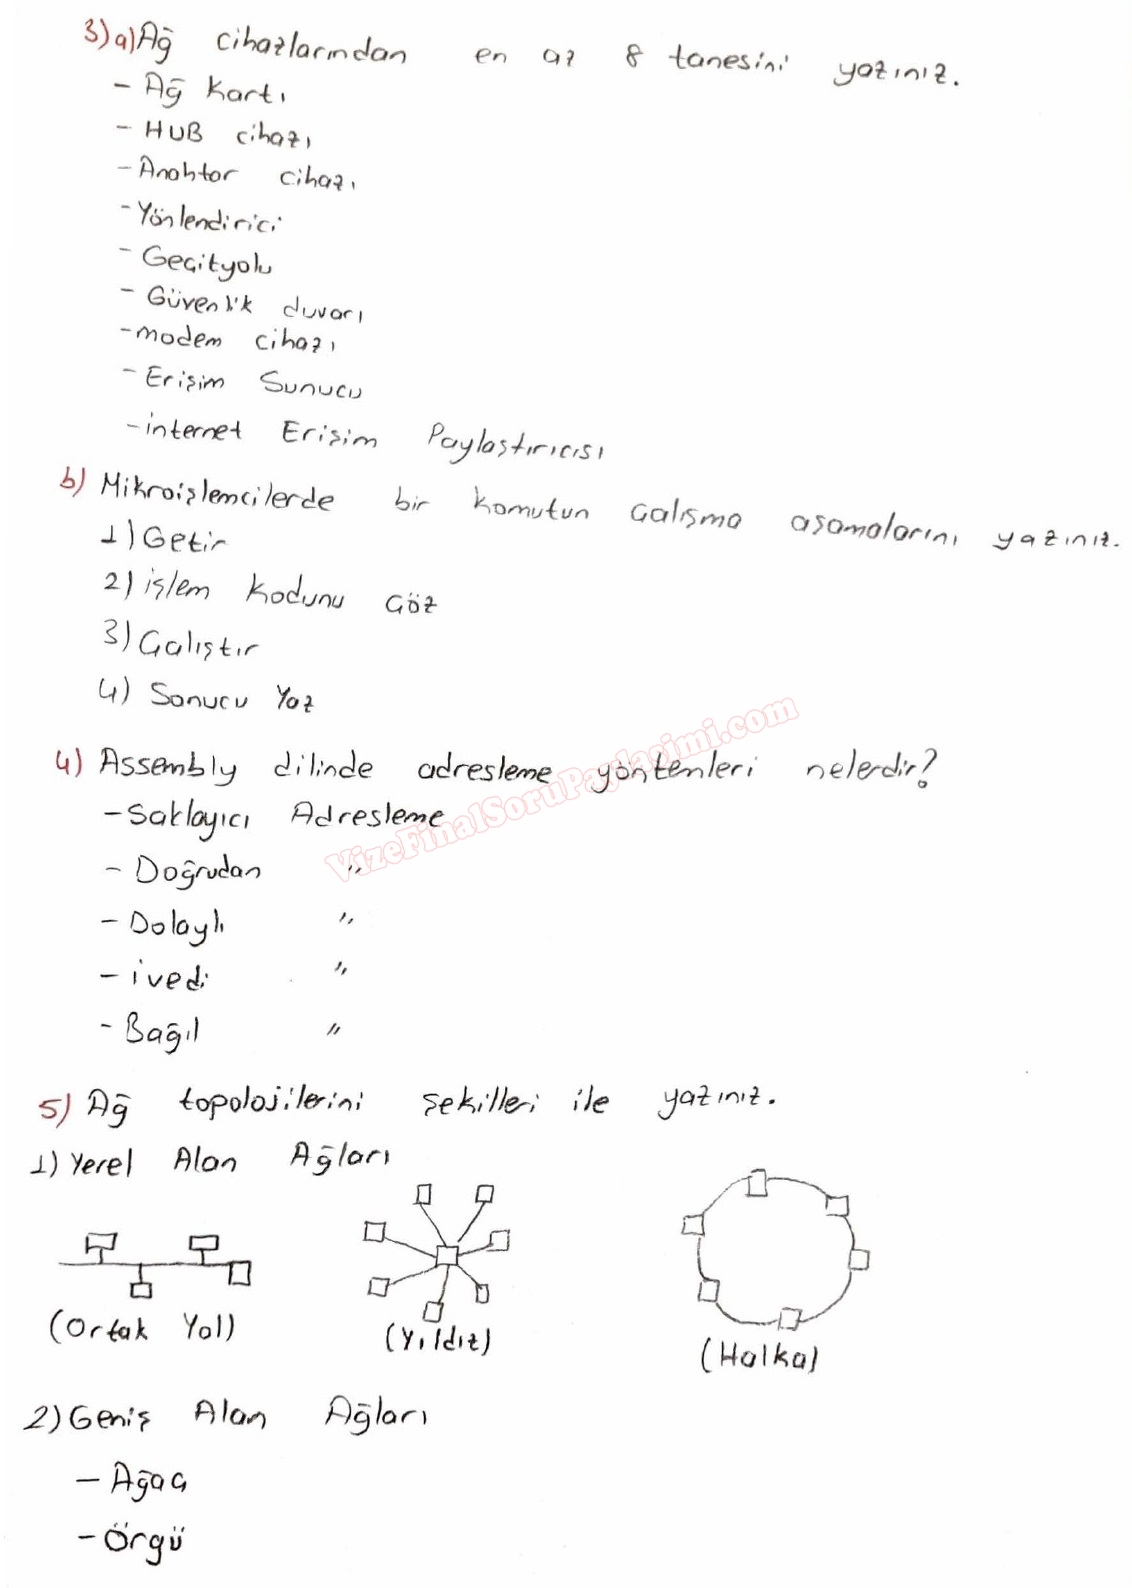 3)a) Ağ cihazlarından en az 8 tanesini yazınız.
- Ağ Kartı
- HUB cihazı
- Anahtar cihazı
- Yönlendirici
- Geçityolu
- Güvenlik duvarı
- modem cihazı
- Erişim Sunucu
- internet Erişim Paylaştırıcısı
b) Mikroişlemcilerde bir komutun çalışma aşamalarını yazınız.
1) Getir
2) işlem kodunu çöz
3) Çalıştır
4) Sonucu Yaz
4) Assembly dilinde adresleme yöntemleri nelerdir?
- Saklayıcı Adresleme
- Doğrudan "
- Dolaylı "
- ivedi "
- Bağıl "
VizeFinalSoruPaylasimi.com
5) Ağ topolojilerini şekilleri ile yazınız.
1) Yerel Alan Ağları
(Ortak Yol) (Yıldız) (Halka)
2) Geniş Alan Ağları
- Ağaç
- Örgü